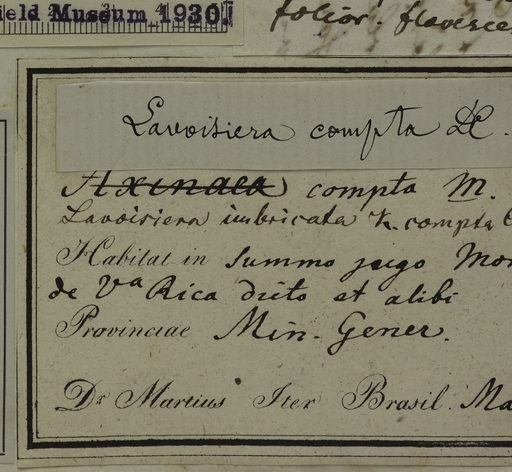 Field Museum 1930
folior. flavesce
Lavoisiera compta DC.
Axinaea compta M.
Lavoisiera imbricata β. compta
Habitat in summo jugo Mon
de Va Rica dicto et alibi
Provinciae Min. Gener.
Dr Martius Iter Brasil. Ma